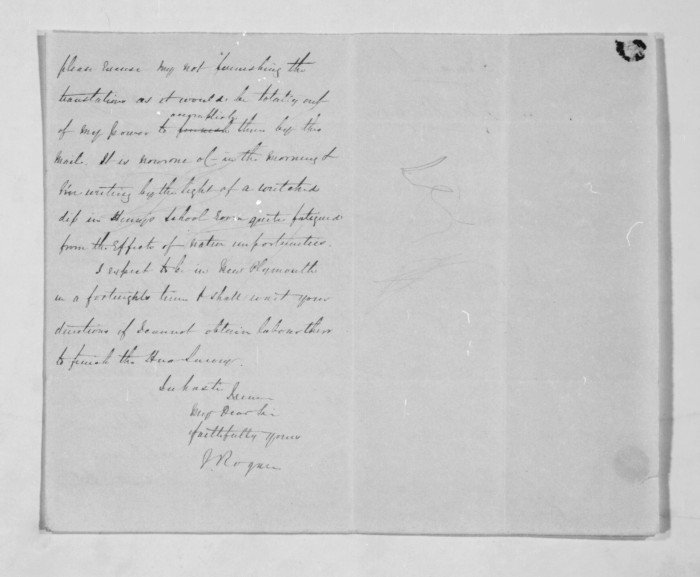 please excuse my not furnishing the
translations as it would be totally out
of my power to furnish them by this
Mail. It is now one o' in the morning &
I'm writing by the light of a wretched
dip in School Room quite fatigued
from the effects of native importunities.
I expect to be in New Plymouth
in a fortnights time & shall wait your
directions if I cannot obtain labour there
to finish the Hua Survey.
In haste
I am
My Dear Sir
faithfully yours
J. Rogan